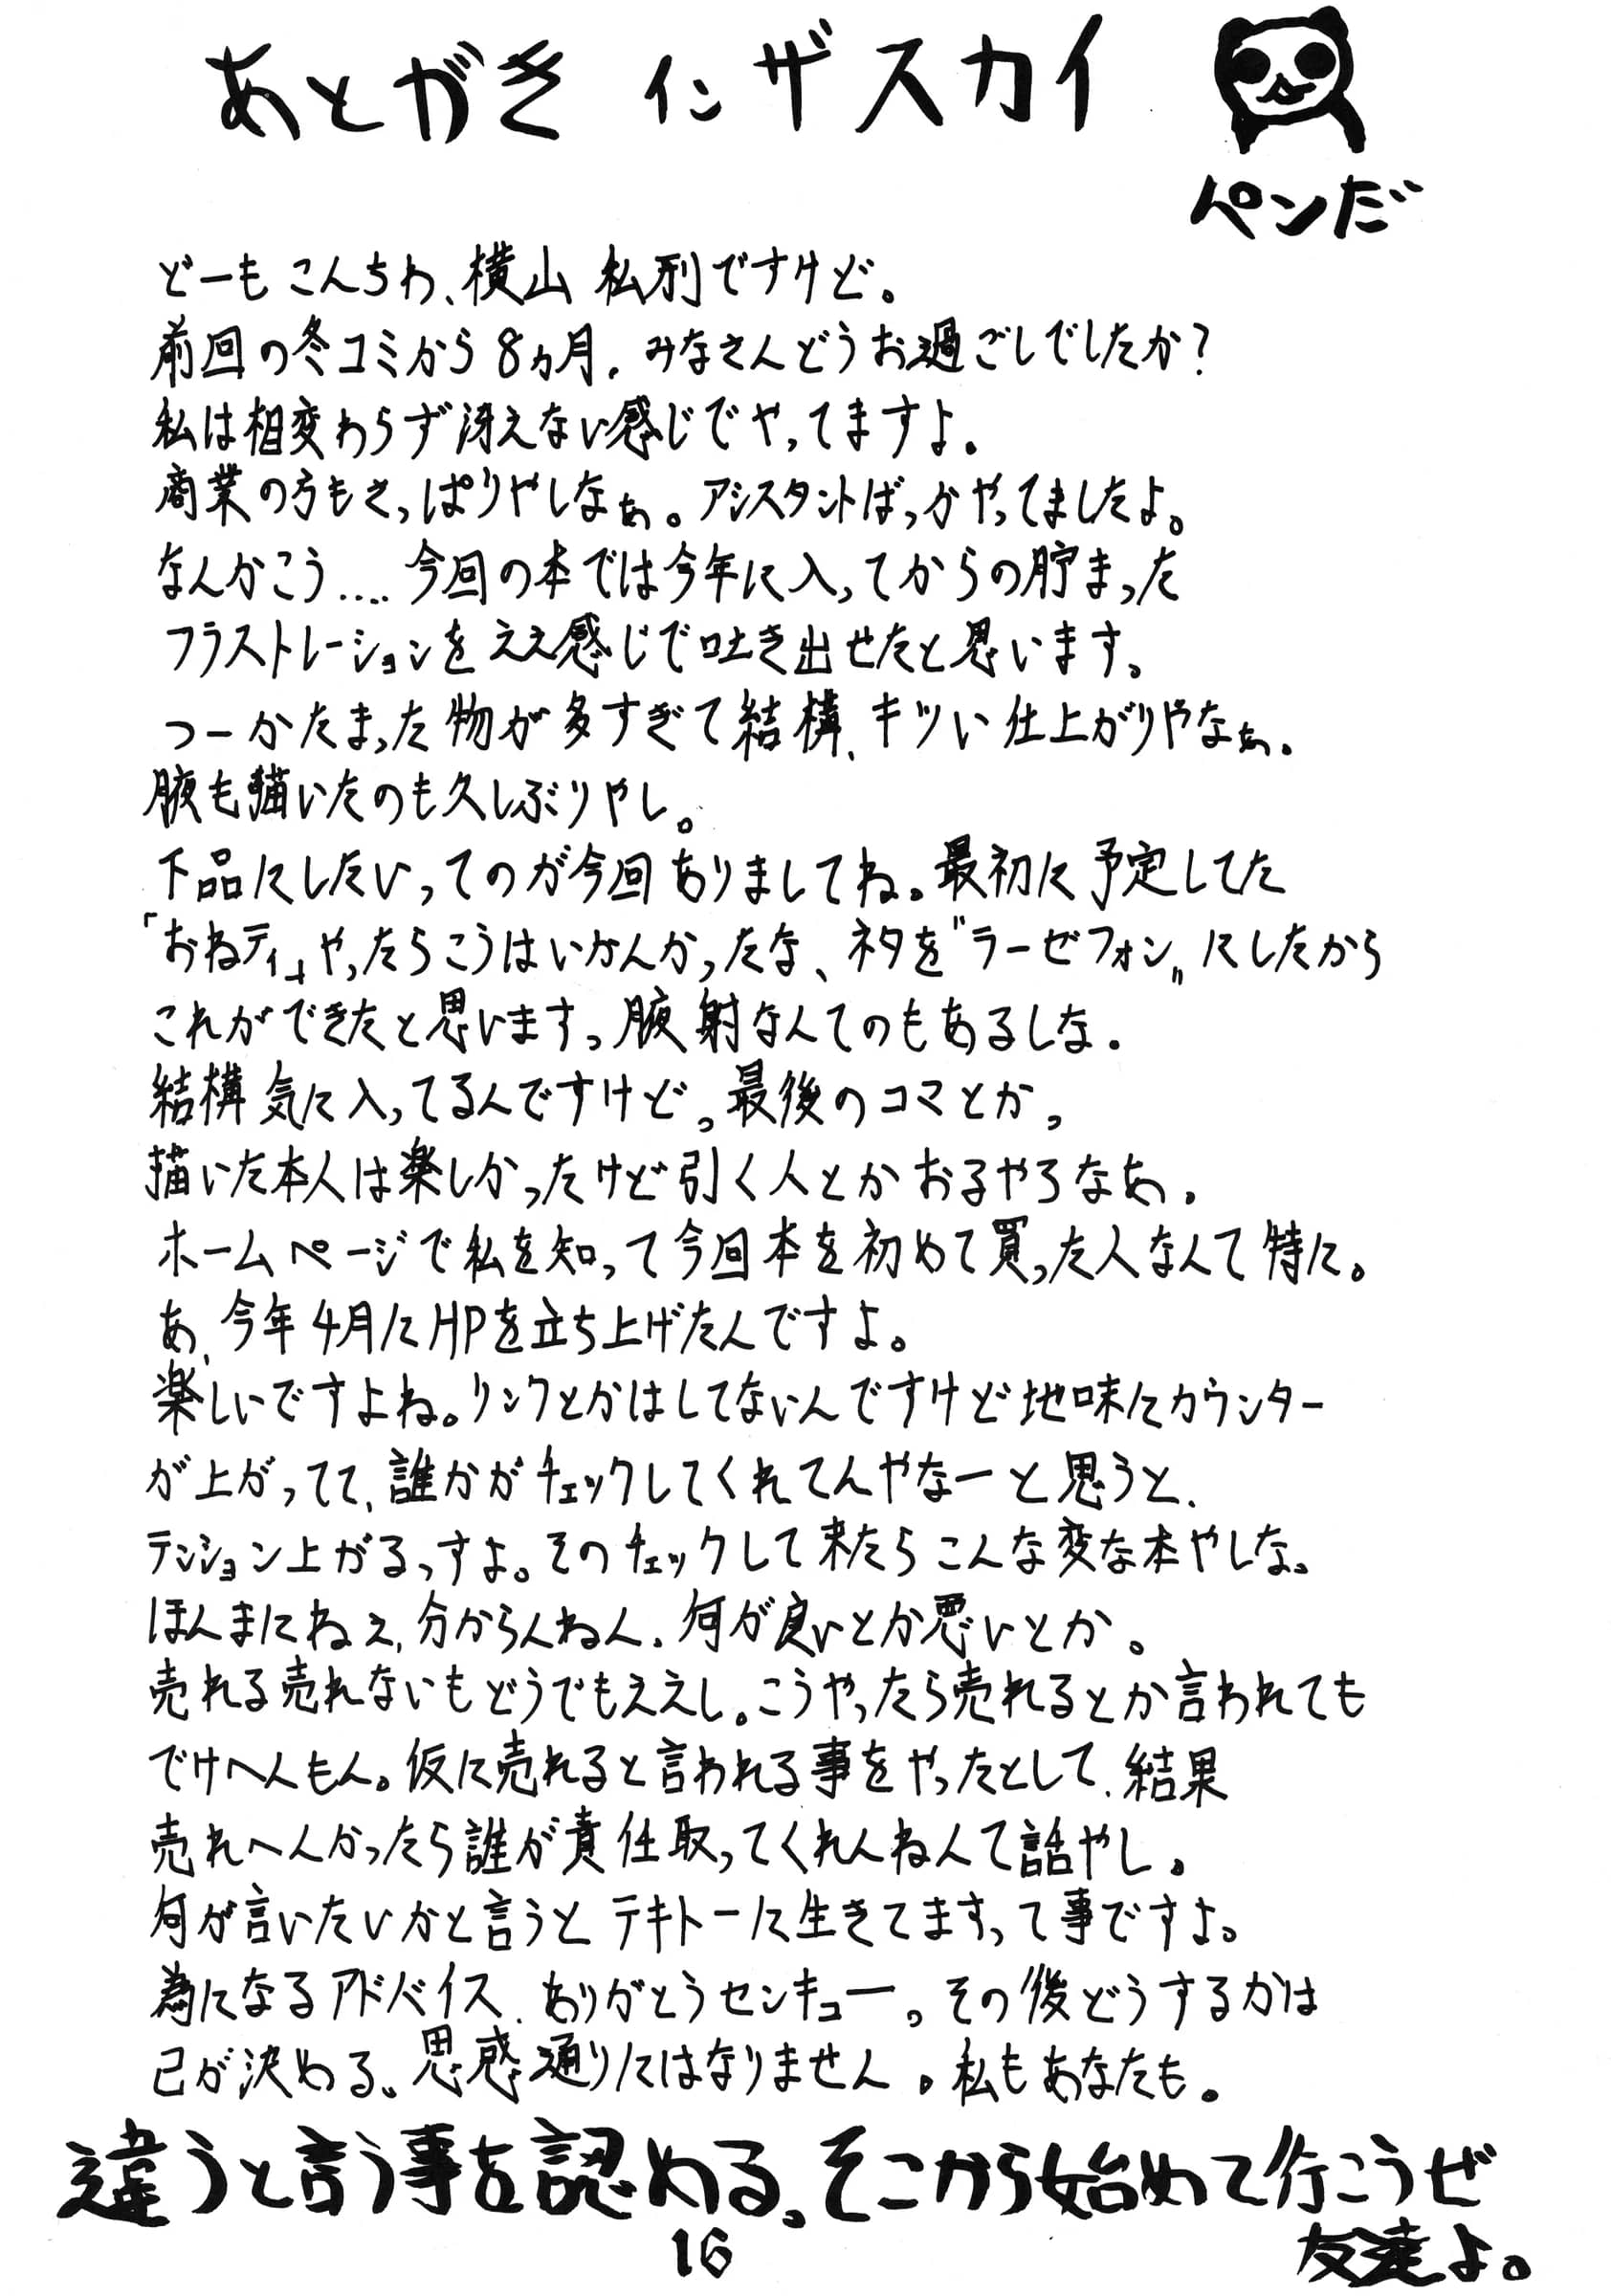 あとがき インザスカイ
ペンだ
どーもこんちわ、横山私刑ですけど。
前回の冬コミから8ヵ月、みなさんどうお過ごしでしたか?
私は相変わらず冴えない感じでやってますよ。
商業の方もさっぱりやしなぁ。アシスタントばっかやってましたよ。
なんかこう.... 今回の本では今年に入ってからの貯まった
フラストレーションをええ感じで吐き出せたと思います。
つーかたまった物が多すぎて結構、キツい仕上がりやなぁ。
腋も描いたのも久しぶりやし。
下品にしたいってのが今回ありましてね。最初に予定してた
「おねティ」やったらこうはいかんかったな、ネタを〝ラーゼフォン〟にしたから
これができたと思います。腋射なんてのもあるしな。
結構気に入ってるんですけど。最後のコマとか。
描いた本人は楽しかったけど引く人とかおるやろなあ。
ホームページで私を知って今回本を初めて買った人なんて特に。
あ、今年4月にHPを立ち上げたんですよ。
楽しいですよね。リンクとかはしてないんですけど地味にカウンター
が上がってて、誰かがチェックしてくれてんやなーと思うと、
テンション上がるっすよ。そのチェックして来たらこんな変な本やしな。
ほんまにねぇ、分からんねん。何が良いとか悪いとか。
売れる売れないもどうでもええし。こうやったら売れるとか言われても
でけへんもん。仮に売れると言われる事をやったとして、結果
売れへんかったら誰が責任取ってくれんねんて話やし。
何が言いたいかと言うとテキトーに生きてますって事ですよ。
為になるアドバイス、ありがとうセンキュー。その後どうするかは
己が決める。思惑通りにはなりません。私もあなたも。
違うと言う事を認める。そこから始めて行こうぜ
友達よ。
16